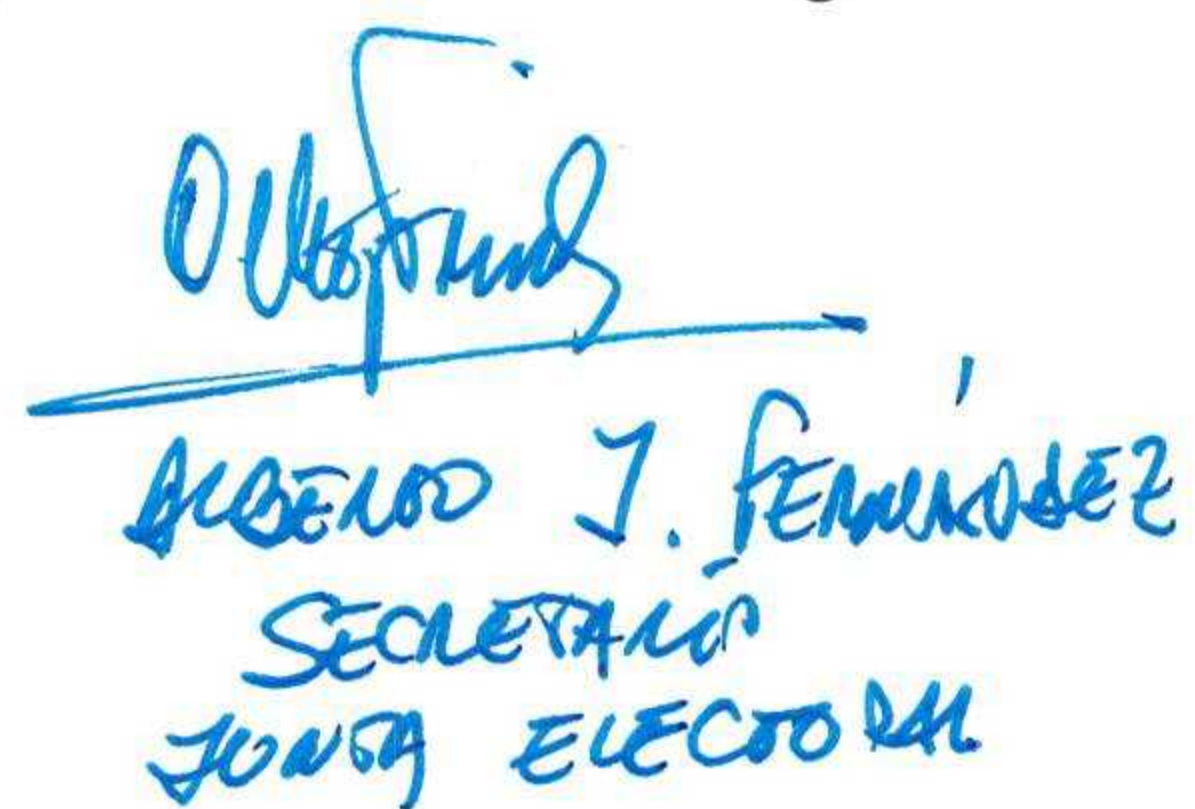 ALBERTO J. FERNÁNDEZ
SECRETARIO
JUNTA ELECTORAL